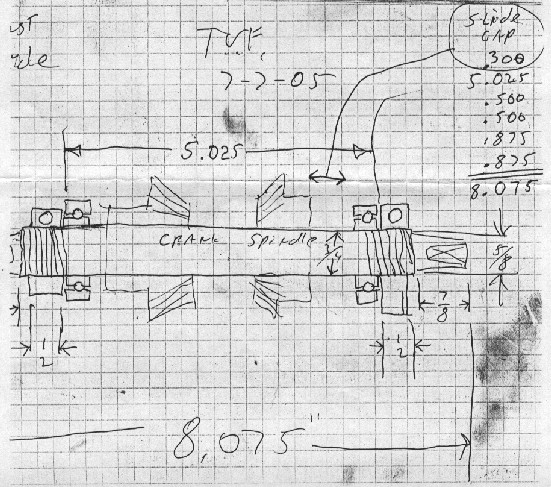 7-7-05
SLide
GAP
.300
5.025
.500
.500
.875
.875
8.075
5.025
CRANK Spindle
5/8
7/8
1/2
1/2
8.075"